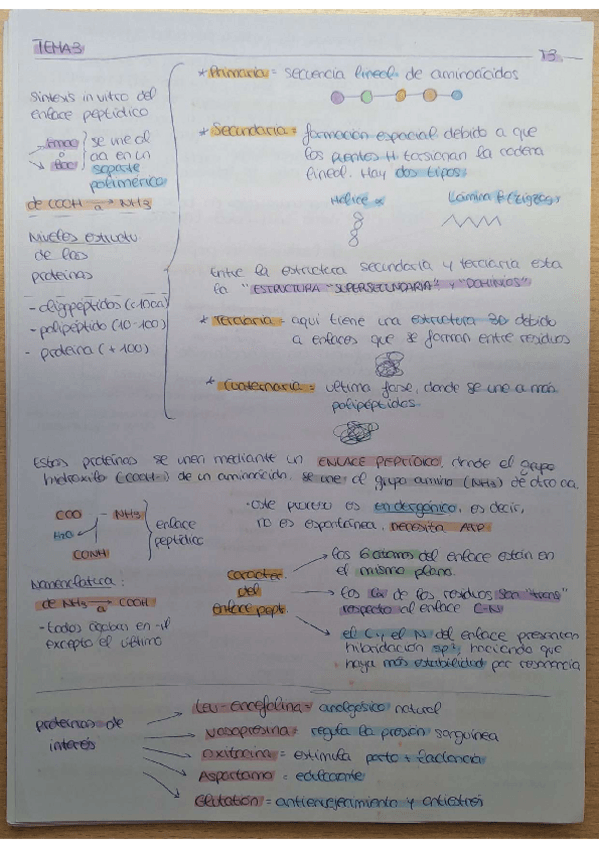 TEMA 3
T3.
Síntesis in vitro del
enlace peptídico
tmoc
o
tboc
se une al
aa en un
soporte
polimérico
de COOH → NH3
a
Niveles estructu
de las
proteínas
- oligopeptidos (<10aa)
- polipeptido (10-100)
- proteína (+100)
* Primaria = secuencia lineal de aminoácidos
* Secundaria = formación espacial debido a que
los puentes H torsionan la cadena
lineal. Hay dos tipos:
Hélice α
Lámina β (zigzag)
Entre la estructura secundaria y terciaria esta
la "ESTRUCTURA "SUPERSECUNDARIA" y "DOMINIOS"
* Terciaria = aquí tiene una estructura 3D debido
a enlaces que se forman entre residuos
* Cuaternaria = ultima fase, donde se une a más
polipéptidos
Estas proteínas se unen mediante un ENLACE PEPTÍDICO, donde el grupo
hidroxilo (COOH-) de un aminoácido, se une al grupo amino (NH3) de otro aa.
COO - NH3
H2O
CONH
enlace
peptídico
- este proceso es endergónico, es decir,
no es espontánea, necesita ATP.
Nomenclatura:
de NH3 → COOH
a
- todos acaban en -il
excepto el último
caracter.
del
enlace pept.
los 6 átomos del enlace están en
el mismo plano.
los Cα de los residuos son "trans"
respecto al enlace C-N
el C y el N del enlace presentan
hibridación sp², haciendo que
haya más estabilidad por resonancia
proteínas de
interés
Leu-encefalina = analgésico natural
Vasopresina = regula la presión sanguínea
oxitocina = estimula parto + lactancia
Aspartamo = edulcorante
Glutation = antienvejecimiento y antiestrés